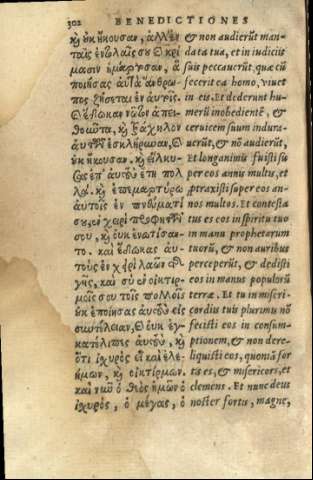 302 BENEDICTIONES
κỳ οὐκ ἤκουσαν, ἀλλ' ἐν
ταῖς ἐντολαῖς σου & κρί
μασιν ἥμαρτσαν, ἃ
ποιήσας αὐτὰ ἄνθρω-
πος ζήσεται ἐν αὐτοῖς.
Θ ἔδωκαν νῶτον ἀπει-
θοῦντα, κỳ τράχηλον
αὐτῶν ἐσκλήρυναν, &
οὐκ ἤκουσαν. κỳ εἵλκυ-
σας ἐπ' αὐτοὺς ἔτη πολ-
λά. κỳ ἐπεμαρτύρω
αὐτοῖς ἐν πνεύματί
σου, ἐν χειρὶ προφητῶν
σου, κỳ οὐκ ἐνωτίσαν-
το. καὶ ἔδωκας αὐ-
τοὺς ἐν χειρὶ λαῶν τῆς
γῆς, καὶ σὺ ἐν οἰκτιρ-
μοῖς σου τοῖς πολλοῖς
οὐκ ἐποίησας αὐτοὺς εἰς
συντέλειαν, & οὐκ ἐγ-
κατέλιπες αὐτοὺς, κỳ
ὅτι ἰχυρὸς εἶ καὶ ἐλε-
ήμων, κỳ οἰκτίρμων.
καὶ νῦν ὁ θεὸς ἡμῶν ὁ
ἰχυρὸς, ὁ μέγας, ὁ
& non audierūt man-
data tua, et in iudiciis
suis peccauerūt, quæ cū
fecerit ea homo, viuet
in eis. Et dederunt hu-
merū inobedientē, &
ceruicem suum indura-
uerūt, & nō audierūt,
Et longanimis fuisti su
per eos annis multis, et
ptraxisti super eos an-
nos multos. Et contesta
tus es eos in spiritu tuo
in manu prophetarum
tuorū, & non auribus
perceperūt, & dedisti
eos in manus populorū
terræ. Et tu in miseri-
cordiis tuis plurimis nō
fecisti eos in consum-
ptionem, & non dere-
liquisti eos, quoniā for
tis es, & misericors, et
clemens. Et nunc deus
noster fortis, magne,